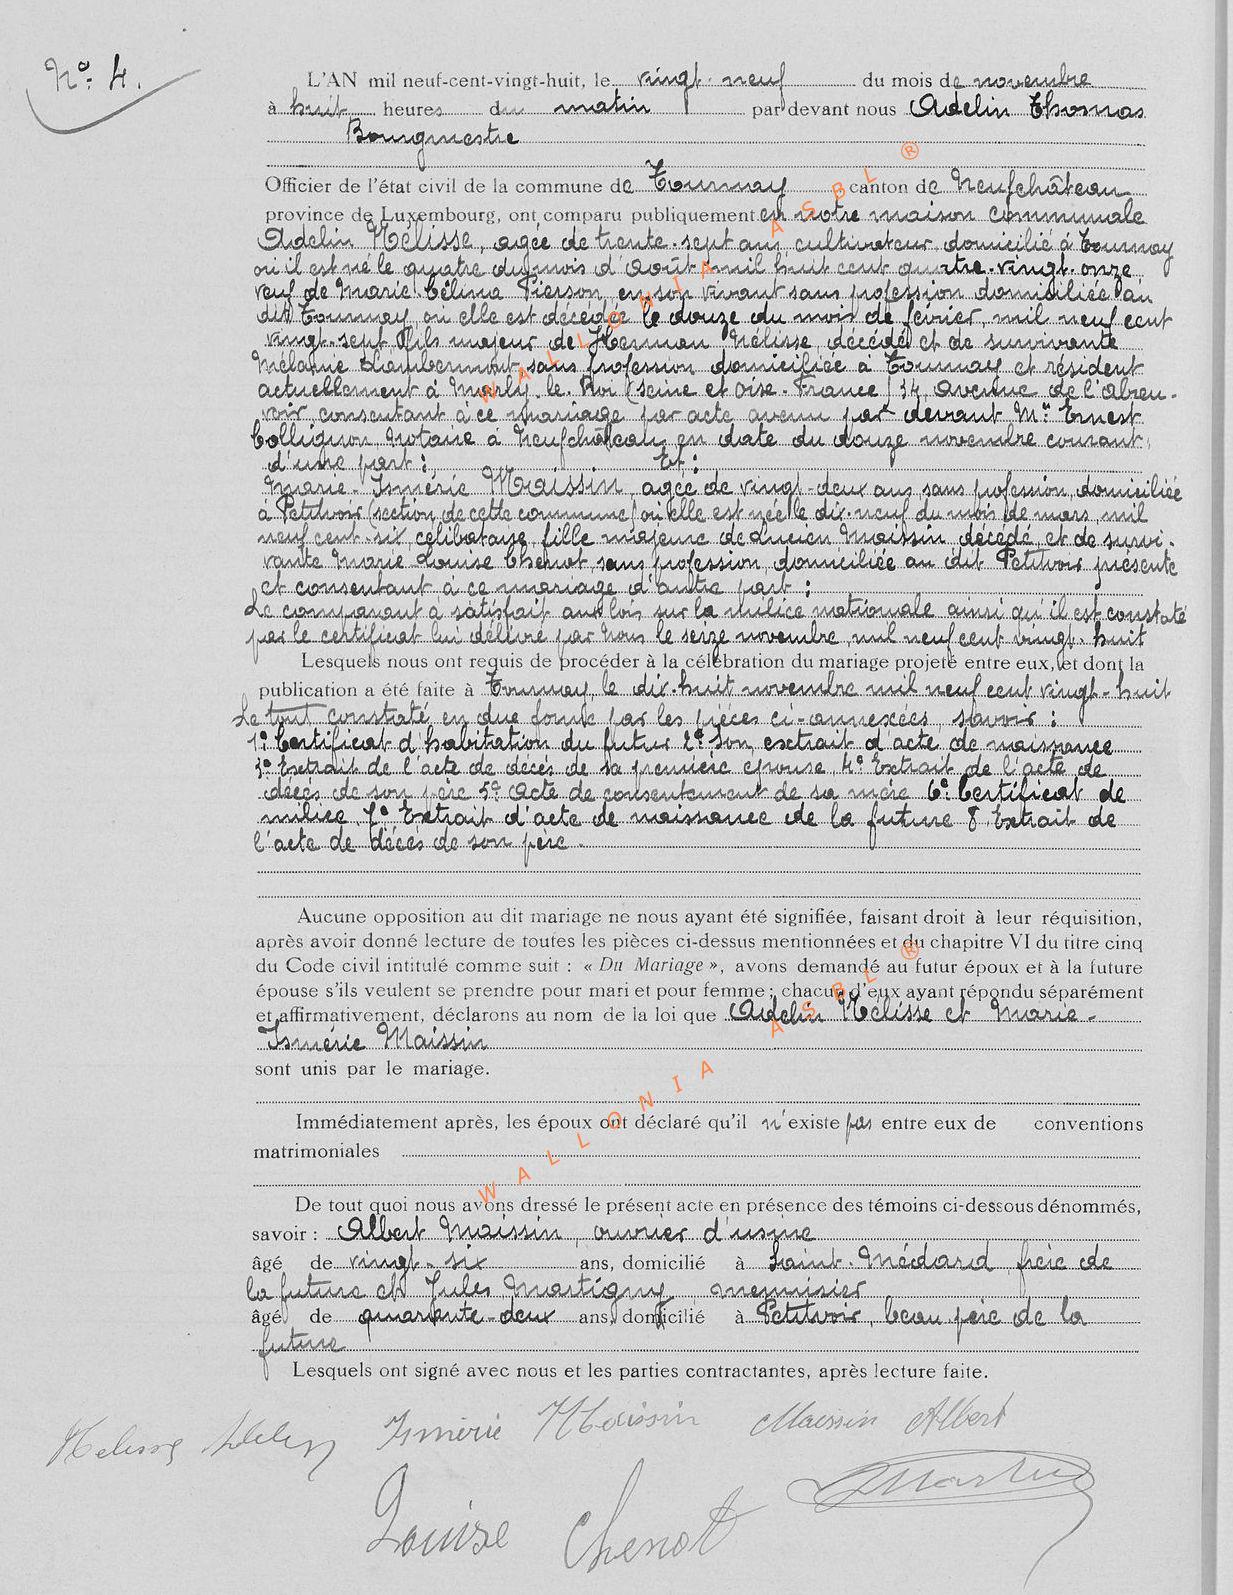 No. 4.
L'AN mil neuf-cent-vingt-huit, le vingt-neuf du mois de novembre
à huit heures du matin par devant nous Adelin Thomas
Bourgmestre
Officier de l'état civil de la commune de Tournay canton de Neufchâteau
province de Luxembourg, ont comparu publiquement en notre maison communale
Adelin Mélisse, agée de trente-sept ans, cultivateur, domicilié à Tournay
où il est né le quatre du mois d'Août mil huit cent quatre-vingt-onze
veuf de Marie Célina Pierson, en son vivant sans profession domiciliée au
dit Tournay, où elle est décédée le douze du mois de février, mil neuf cent
vingt-sept, fils majeur de Herman Mélisse, décédé et de survivante
Mélanie Lambermont, sans profession domiciliée à Tournay et résident
actuellement à Marly-le-Roi (Seine et Oise-France) 34, avenue de l'Abreu-
voir, consentant à ce mariage par acte avenu par devant Me Ernest
Collignon Notaire à Neufchâteau, en date du douze novembre courant,
d'une part; Et:
Marie-Ismérie Maissin, agée de vingt-deux ans, sans profession, domiciliée
à Petitvoir (section de cette commune) où elle est née le dix-neuf du mois de mars, mil
neuf cent-six, célibataire, fille majeure de Lucien Maissin décédé, et de survi-
vante Marie Louise Chenot, sans profession, domiciliée au dit Petitvoir présente
et consentant à ce mariage d'autre part;
Le comparant a satisfait aux lois sur la milice nationale ainsi qu'il est constaté
par le certificat lui délivré par nous le seize novembre, mil neuf cent vingt-huit
Lesquels nous ont requis de procéder à la célébration du mariage projeté entre eux, et dont la
publication a été faite à Tournay, le dix-huit novembre mil neuf cent vingt-huit
Le tout constaté en due forme par les pièces ci-annexées, savoir:
1° Certificat d'habitation du futur 2° son extrait d'acte de naissance
3° Extrait de l'acte de décès de sa première épouse, 4° Extrait de l'acte de
décès de son père 5° Acte de consentement de sa mère 6° Certificat de
milice, 7° Extrait d'acte de naissance de la future 8. Extrait de
l'acte de décès de son père.
Aucune opposition au dit mariage ne nous ayant été signifiée, faisant droit à leur réquisition,
après avoir donné lecture de toutes les pièces ci-dessus mentionnées et du chapitre VI du titre cinq
du Code civil intitulé comme suit : « Du Mariage », avons demandé au futur époux et à la future
épouse s'ils veulent se prendre pour mari et pour femme ; chacun d'eux ayant répondu séparément
et affirmativement, déclarons au nom de la loi que Adelin Mélisse et Marie-
Ismérie Maissin
sont unis par le mariage.
Immédiatement après, les époux ont déclaré qu'il n'existe pas entre eux de conventions
matrimoniales
De tout quoi nous avons dressé le présent acte en présence des témoins ci-dessous dénommés,
savoir : Albert Maissin, ouvrier d'usine
âgé de vingt-six ans, domicilié à Saint-Médard, frère de
la future et Jules Martigny menuisier
âgé de quarante-deux ans, domicilié à Petitvoir, beau-père de la
future
Lesquels ont signé avec nous et les parties contractantes, après lecture faite.
Melisse Adelin Ismérie Maissin Maissin Albert
Louise Chenot
WALLONIA ASBL ®
WALLONIA ASBL ®